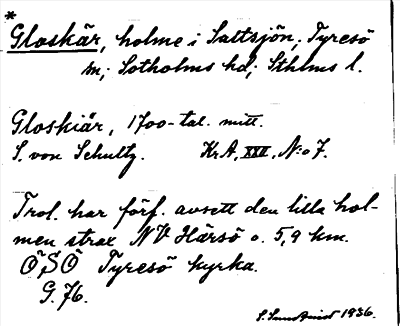 *
Gloskär, holme i Saltsjön, Tyresö
sn; Sotholms hd; Sthlms l.
Gloskiär, 1700-tal. mitt.
S. von Schultz. KrA, XXII, N:o 7.
Trol. har förf. avsett den lilla hol-
men strax NV Härsö o. 5,9 km.
ÖSÖ Tyresö kyrka.
G. 76.
1936.